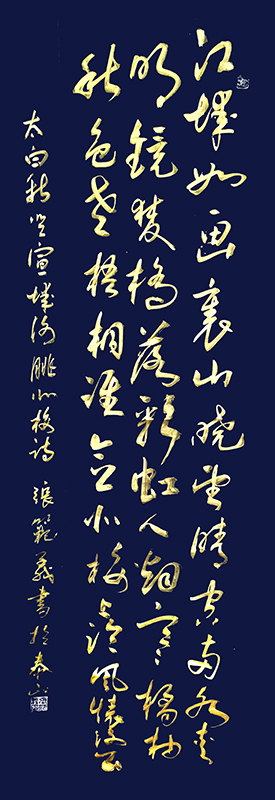 江城如画裏山曉望晴空兩水夾
明鏡雙橋落彩虹人烟寒橘柚
秋色老梧桐誰念北樓上臨風懷謝公
太白秋登宣城謝朓北樓詩 張範義書於泰山